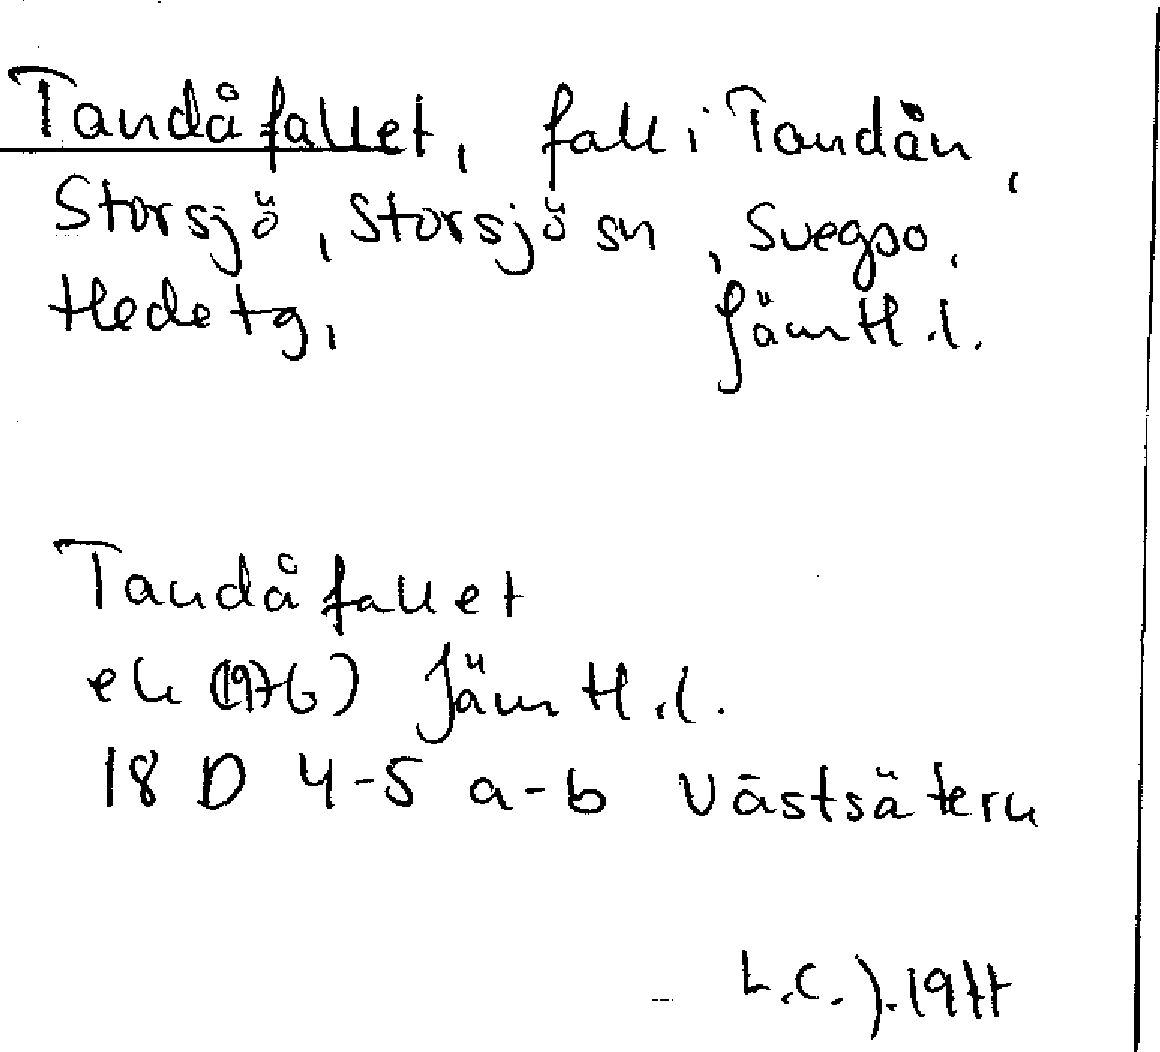 Tandåfallet, fall i Tandån,
Storsjö, Storsjö sn, Svegs po,
Hede tg, Jämtl. l.
Tandåfallet
ek (1976) Jämtl. l.
18 D 4-5 a-b Västsätern
L.C.J. 1977